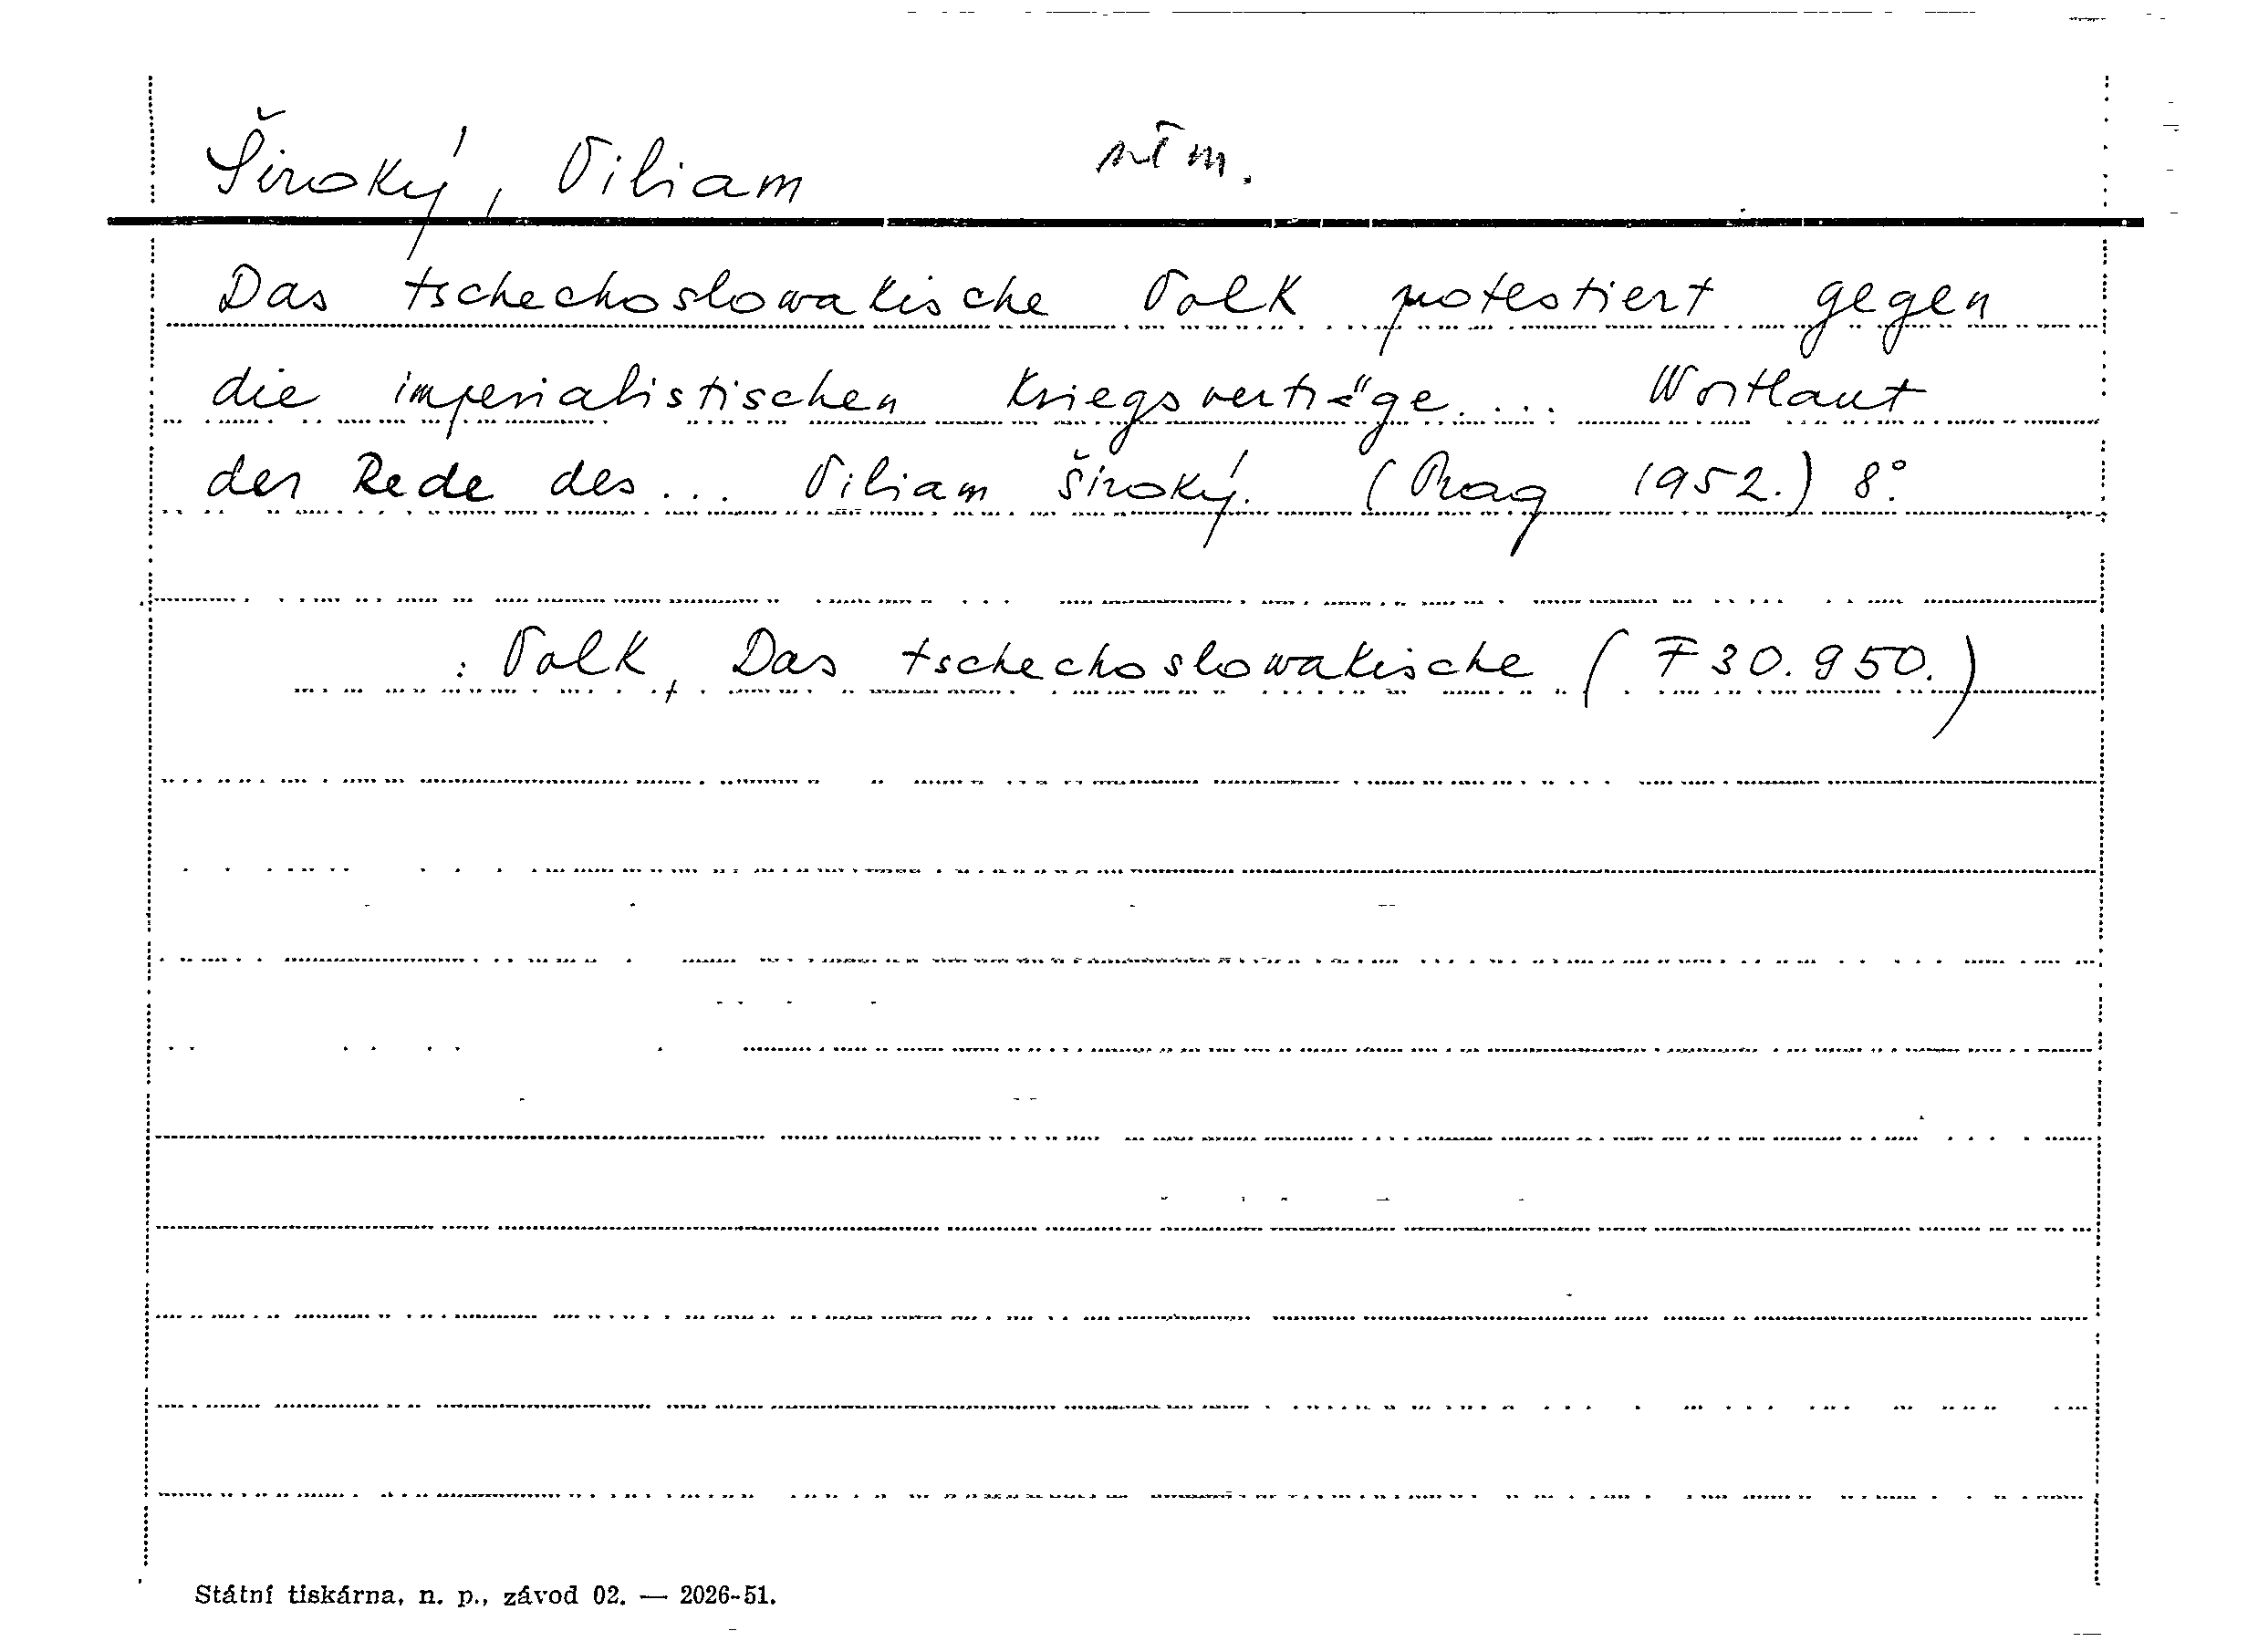 Široký, Viliam
Das tschechoslowakische Volk protestiert gegen
die imperialistischen Kriegsverträge.... Wortlaut
der Rede des... Viliam Široký. (Prag 1952.) 8°.
: Volk, Das tschechoslowakische (F 30.950.)
Státní tiskárna, n. p., závod 02. — 2026-51.